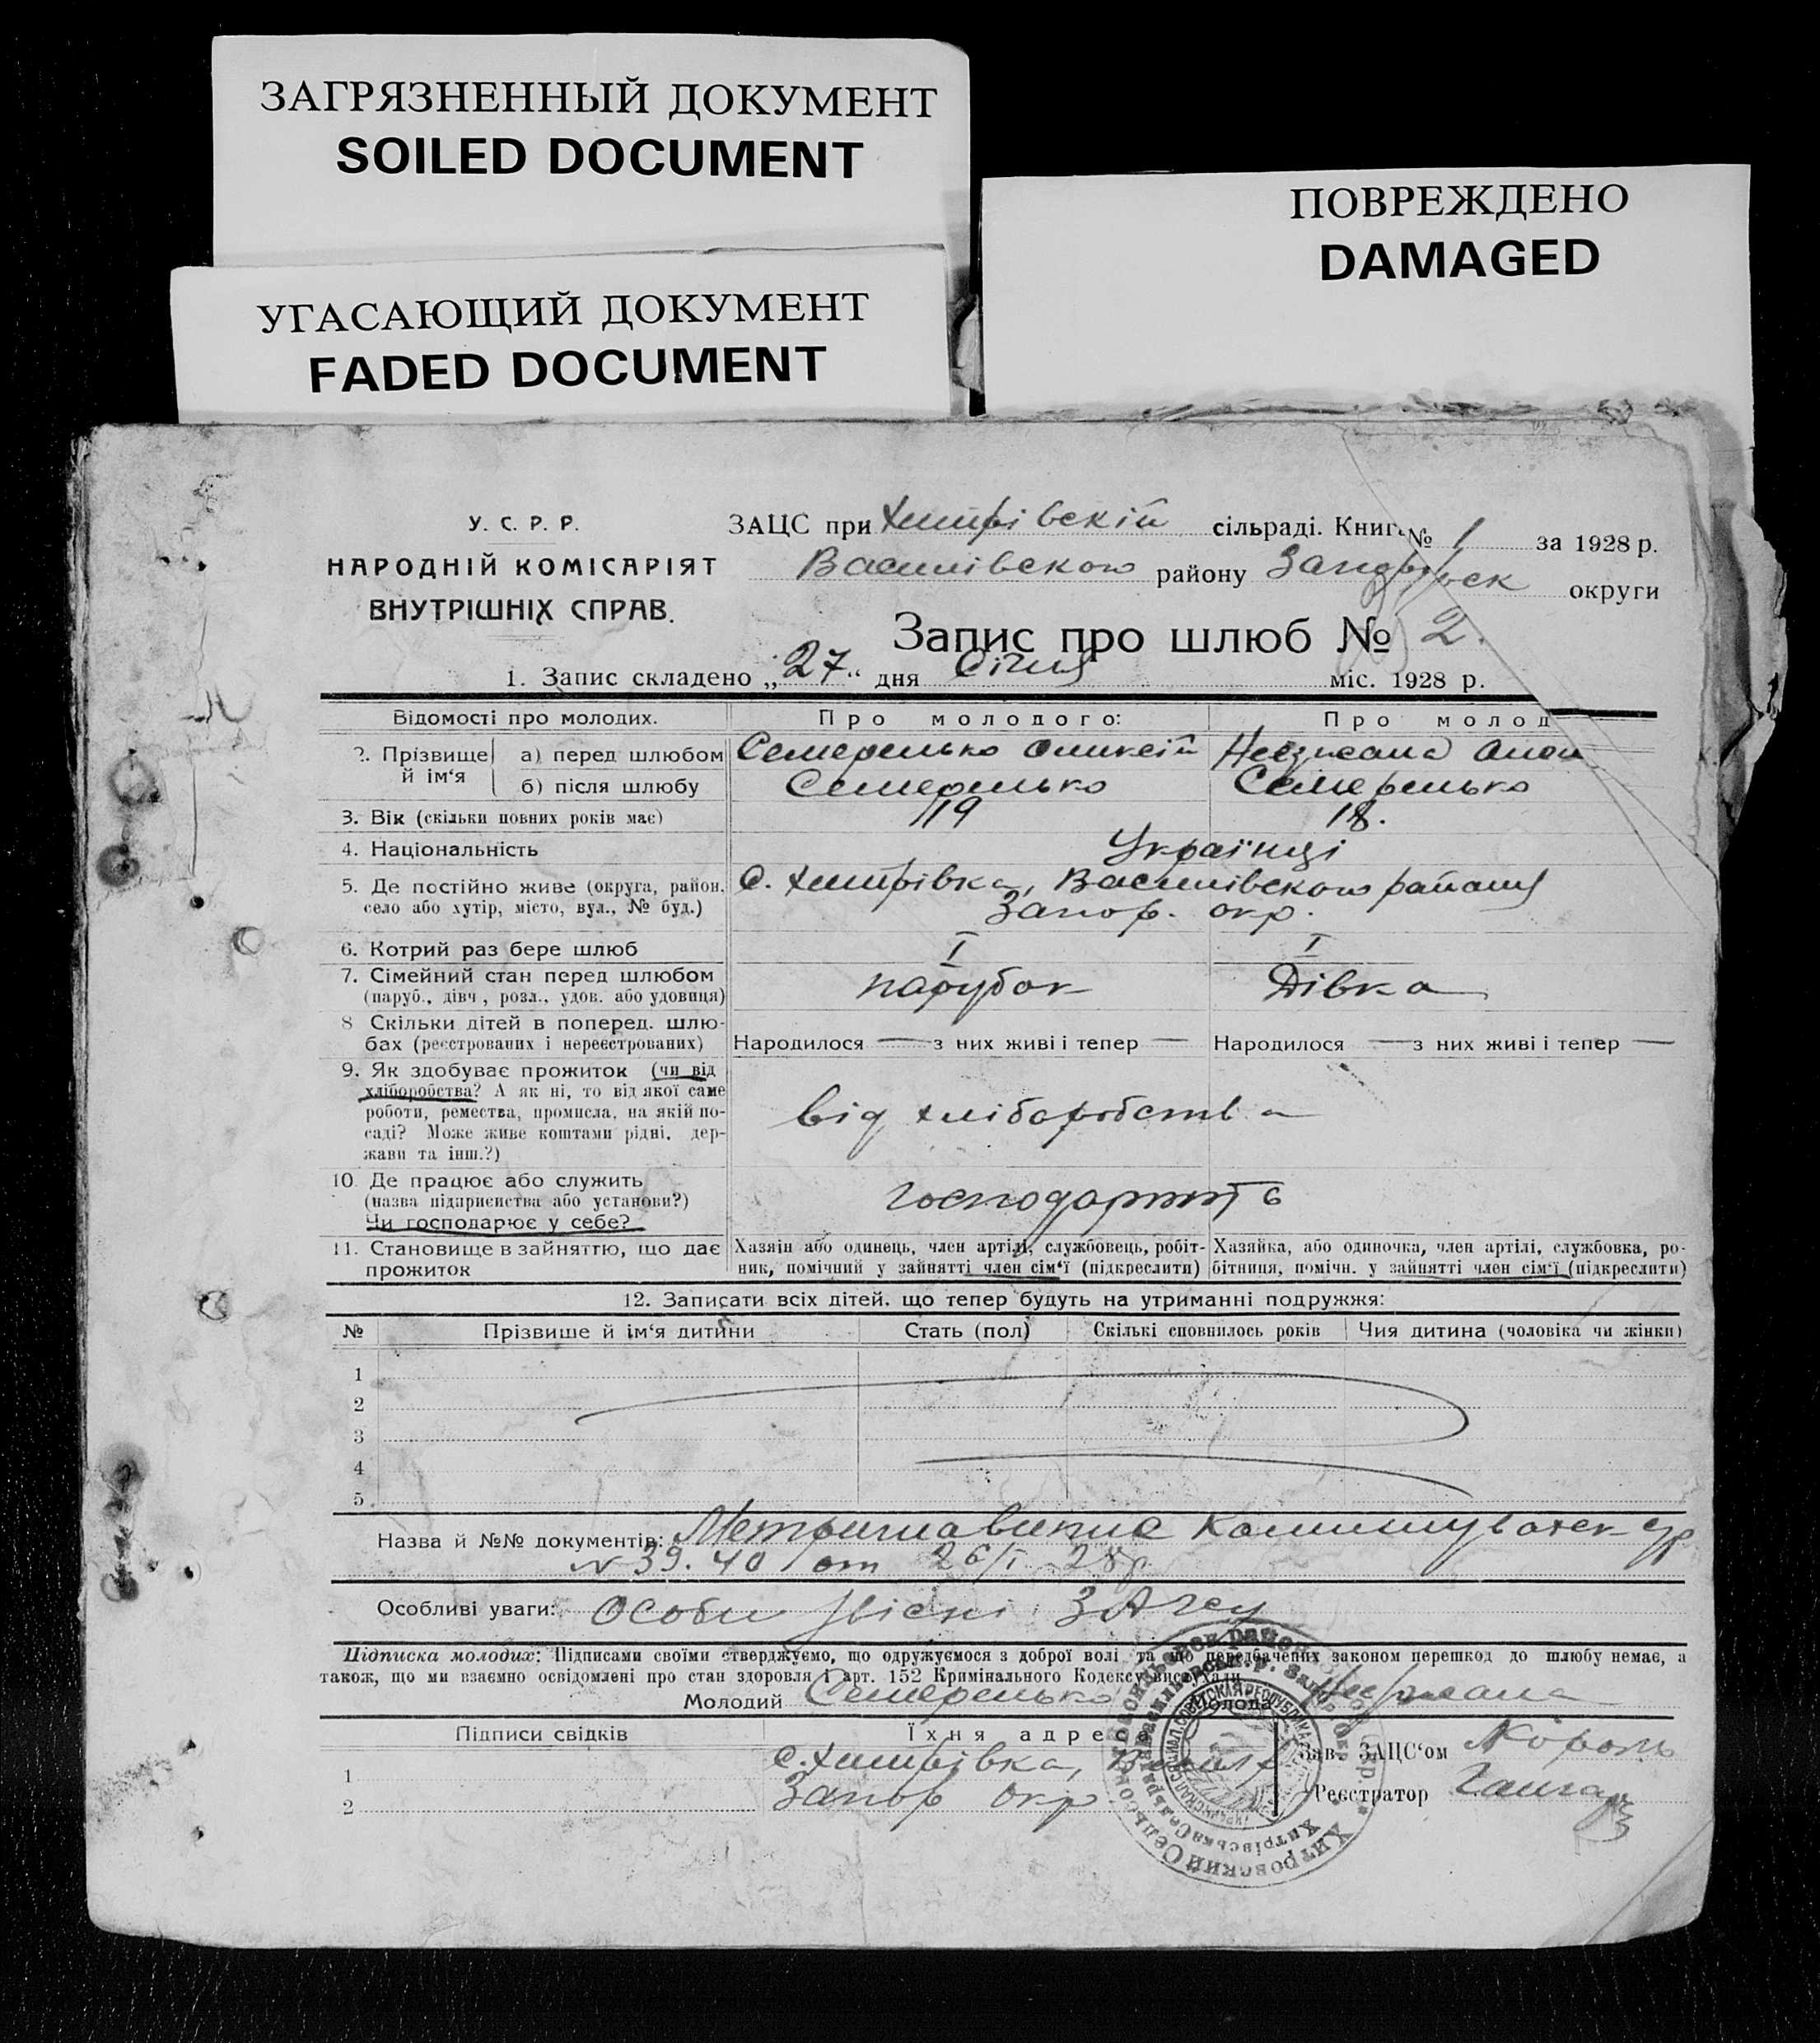 ЗАГРЯЗНЕННЫЙ ДОКУМЕНТ
SOILED DOCUMENT
ПОВРЕЖДЕНО
DAMAGED
УГАСАЮЩИЙ ДОКУМЕНТ
FADED DOCUMENT
У. С. Р. Р.
НАРОДНІЙ КОМІСАРІЯТ
ВНУТРІШНІХ СПРАВ.
ЗАЦС при Хитрівскій сільраді. Книга № 1 за 1928 р.
Василівского району округи
Запис про шлюб № 2.
1. Запис складено „27“ дня Січня міс. 1928 р.
Відомості про молодих. Про молодого: Про молод
2. Прізвище й ім‘я а) перед шлюбом Семеренько Олексій
б) після шлюбу Семеренько Семеренько
3. Вік (скільки повних років має) 19 18.
4. Національність Українці
5. Де постійно живе (округа, район, село або хутір, місто, вул., № буд.) С. Хитрівка, Василівского району
Запор. окр.
6. Котрий раз бере шлюб I I
7. Сімейний стан перед шлюбом (паруб., дівч., розл., удов. або удовиця) парубок Дівка
8 Скільки дітей в поперед. шлюбах (реєстрованих і нереєстрованих) Народилося — з них живі і тепер — Народилося — з них живі і тепер —
9. Як здобуває прожиток (чи від
хліборобства? А як ні, то від якої саме
роботи, ремества, промисла, на якій по-
саді? Може живе коштами рідні, дер-
жави та інш.?)
від хліборобства
10. Де працює або служить
(назва підприємства або установи?)
Чи господарює у себе?
11. Становище в зайняттю, що дає прожиток
Хазяїн або одинець, член артілі, службовець, робіт-
ник, помічний у зайнятті член сім‘ї (підкреслити)
Хазяйка, або одиночка, член артілі, службовка, ро-
бітниця, помічн. у зайнятті член сім‘ї (підкреслити)
12. Записати всіх дітей, що тепер будуть на утриманні подружжя:
№ Прізвище й ім‘я дитини Стать (пол) Скількі сповнилось років Чия дитина (чоловіка чи жінки)
1
2
3
4
5
Назва й №№ документів:
N 39. 40 от 26/I 28р
Особливі уваги: Особи звісні ЗАГСу
Підписка молодих: Підписами своїми стверджуємо, що одружуємося з доброї волі та що передбачених законом перешкод до шлюбу немає, а
також, що ми взаємно освідомлені про стан здоровля і арт. 152 Кримінального Кодексу вислухали
Молодий Семеренько Молода
Підписи свідків Їхня адре
1 с. Хитрівка,
2 Запор окр
Зав. ЗАЦС‘ом Король
Реєстратор